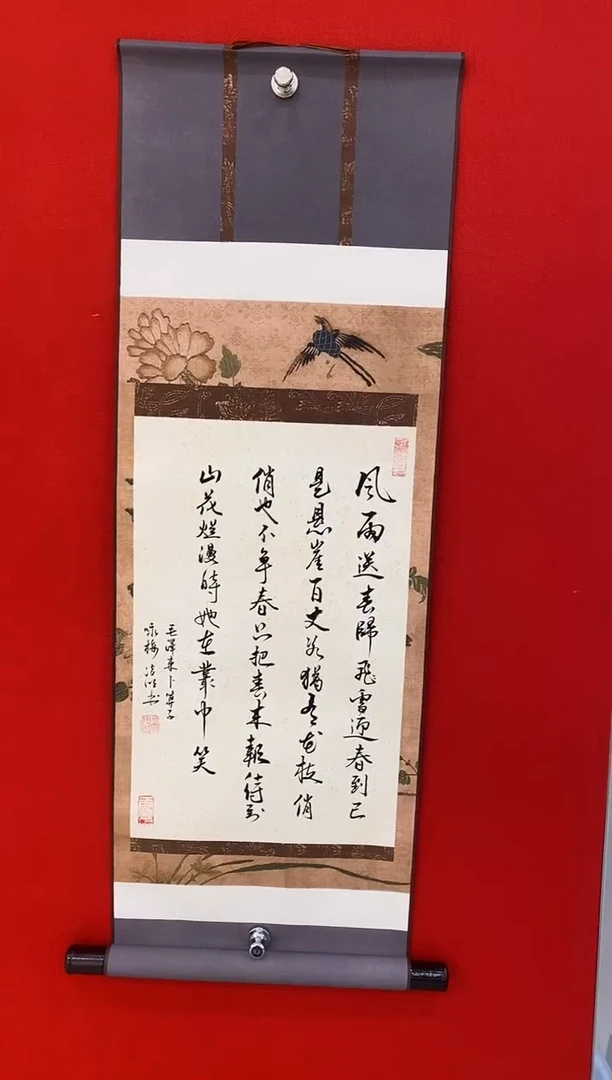 風雨送春歸飛雪迎春到已
是懸崖百丈冰猶有花枝俏
俏也不争春只把春来報待到
山花爛漫時她在叢中笑
毛澤東卜算子
咏梅